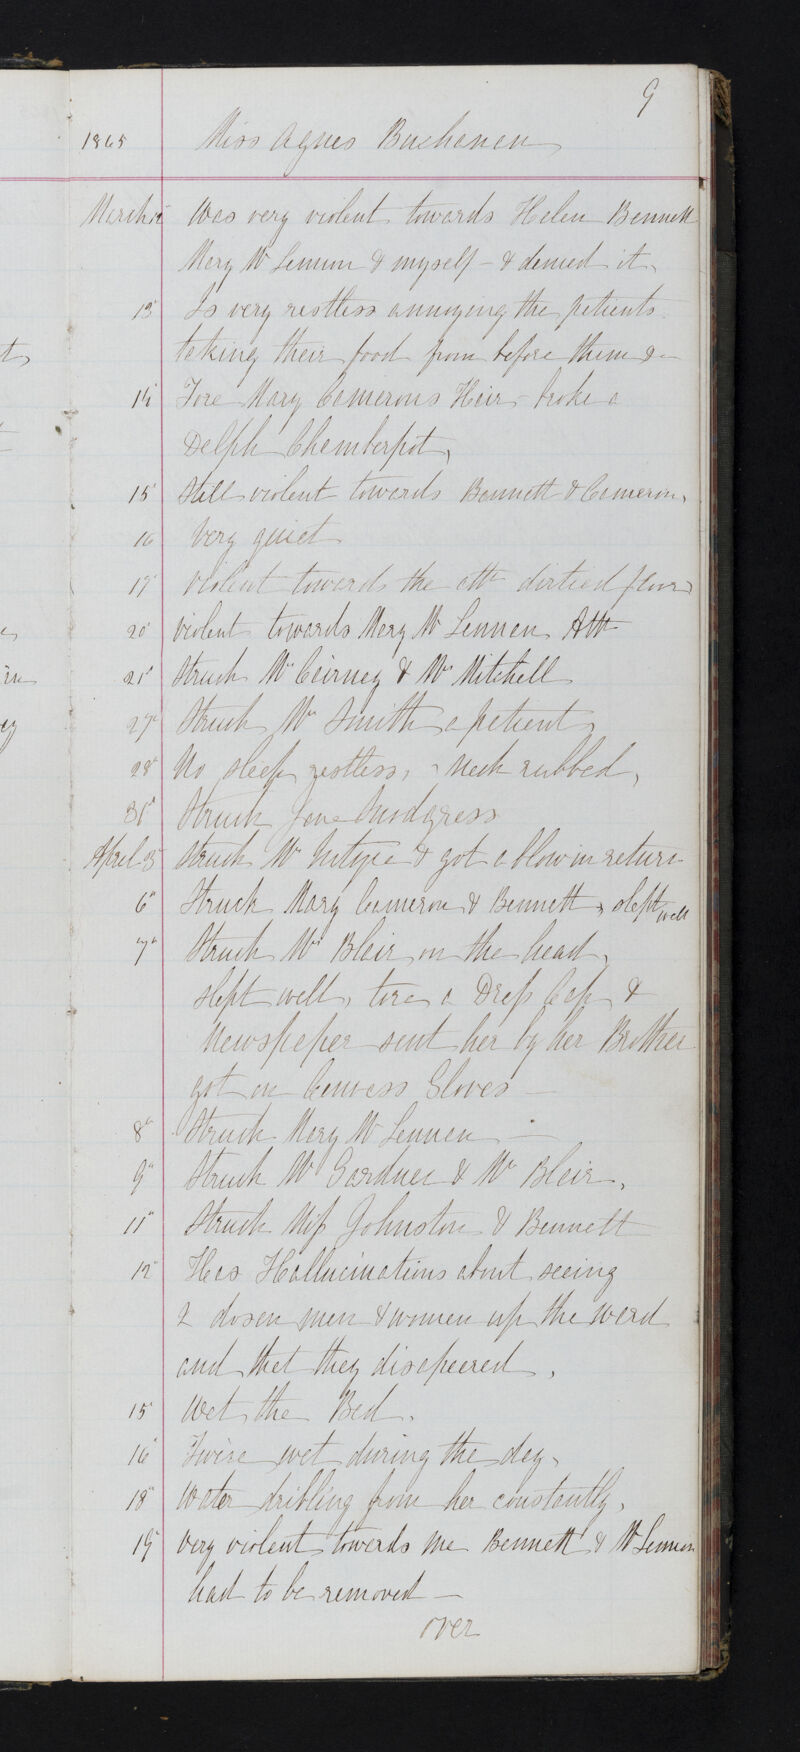 9
1865 Miss Agnes Buchanan
March 12 Was very violent towards Helen Bennett
Mary Mc Lennen & myself - & denied it.
13 Is very restless annoying the patients
taking their food from before them &
14 Tore Mary Camerons Hair - broke a
Delph Chamberpot,
15 Still violent towards Bennett & Cameron,
16 Very quiet
17 violent towards the att dirtied floor
20 violent towards Mary Mc Lennen Att
21 Struck Mrs Cairney & Mrs Mitchell
27 Struck Mrs Smith a patient
28 No sleep, restless, neck rubbed,
31 Struck Jane Snodgrass
April 5 Struck Mc Intyre & got a blow in return
6 Struck Mary Cameron & Bennett, slept well
7 Struck Mrs Blair on the head,
slept well, tore a Dress Cap &
Newspaper sent her by her Brother
got on Canvass Gloves -
8 Struck Mary Mc Lennen -
9 Struck Mrs Gardner & Mrs Blair,
11 Struck Miss Johnston & Bennett
12 Has Hallucinations about seeing
2 dosen men & women up the ward
and that they disapeered,
15 Wet the Bed.
16 Twice wet during the day,
18 Water dribling from her constantly,
19 Very violent towards me Bennett & Mc Lennen
had to be removed -
over